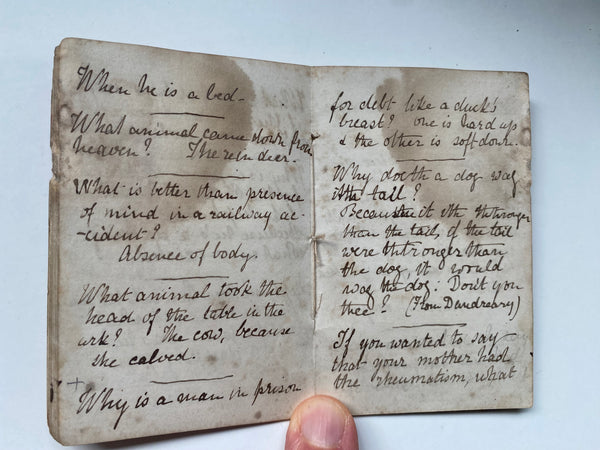 When he is a bed-
What animal came down from
heaven? The rein deer.
What is better than presence
of mind in a railway ac-
-cident?
Absence of body.
What animal took the
head of the table in the
ark? The cow, because
she calved.
+
Why is a man in prison
for debt like a duck's
breast? one is hard up
& the other is soft down.
Why doth a dog wag
ith tail?
Because it ith thtronger
than the tail, if the tail
were thtronger than
the dog, it would
wag the dog. Don't you
thee? (From Dundreary)
If you wanted to say
that your mother had
the rheumatism, what